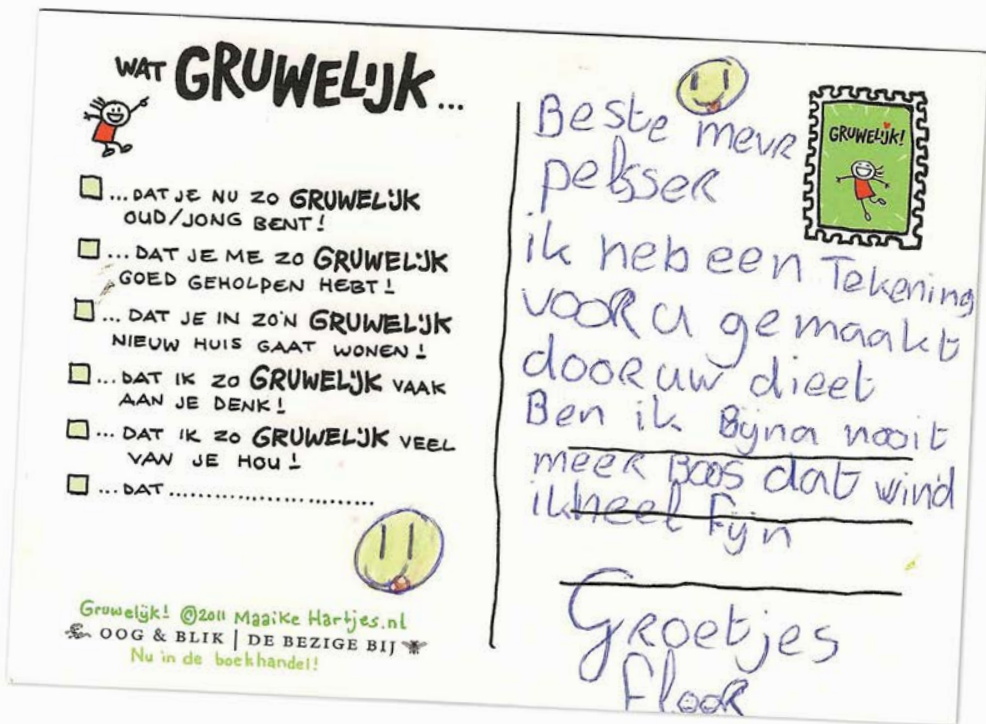 WAT GRUWELIJK...
... DAT JE NU ZO GRUWELIJK
OUD/JONG BENT!
... DAT JE ME ZO GRUWELIJK
GOED GEHOLPEN HEBT!
... DAT JE IN ZO'N GRUWELIJK
NIEUW HUIS GAAT WONEN!
... DAT IK ZO GRUWELIJK VAAK
AAN JE DENK!
... DAT IK ZO GRUWELIJK VEEL
VAN JE HOU!
... DAT ..........................
Gruwelijk! ©2011 Maaike Hartjes.nl
OOG & BLIK | DE BEZIGE BIJ
Nu in de boekhandel!
GRUWELIJK!
Beste mevR
pelsseR
ik heb een Tekening
vooR u gemaakt
dooR uw dieet
Ben ik Bijna nooit
meeR Boos dat wind
ik heel Fijn
GRoetjes
FlooR